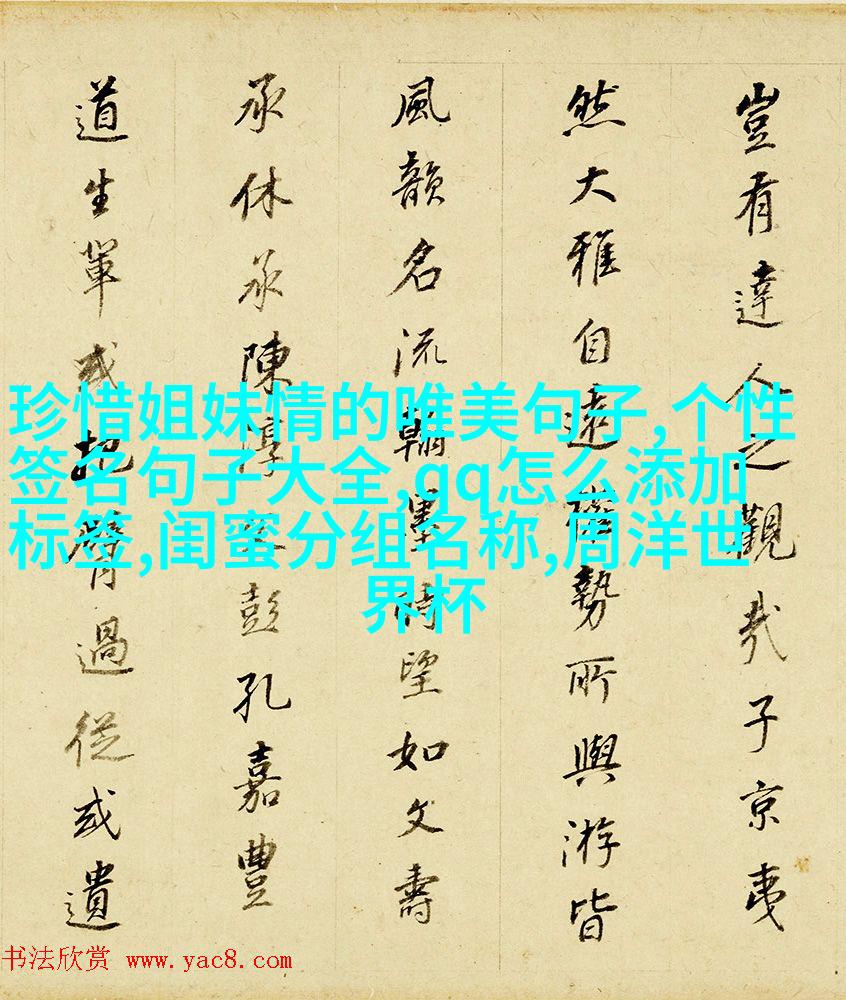 豈有達人之觀哉子京夷
然大雅自遠權勢所與游皆
風韻名流翰墨時望如文壽
承休承陳淳父彭孔嘉豐
道生輩或把臂過從或遺
珍惜姐妹情的唯美句子,个性
签名句子大全,qq怎么添加
标签,闺蜜分组名称,周洋世
界杯
书法欣赏 www.yac8.com